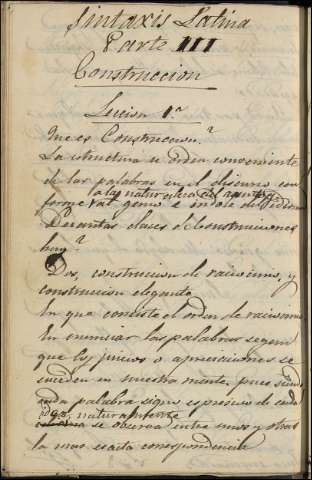 Sintaxis Latina
Parte III
Construccion
Leccion 1ª
Que es Construccion?
La structura u orden conveniente
de las palabras en el discurso con
a la naturaleza
forme al genio e indole del idioma
De cuantas clases de construcciones
hay?
Dos, construccion de raciocinio, y
construccion elegante.
En que consiste el orden de raciocinio
En enunciar las palabras segun
que los juicios o apreciaciones se
suceden en nuestra mente, pues siendo
cada palabra signo espresivo de cada
idea, naturalmente
se observa entre unos y otras
la mas exacta correspondencia